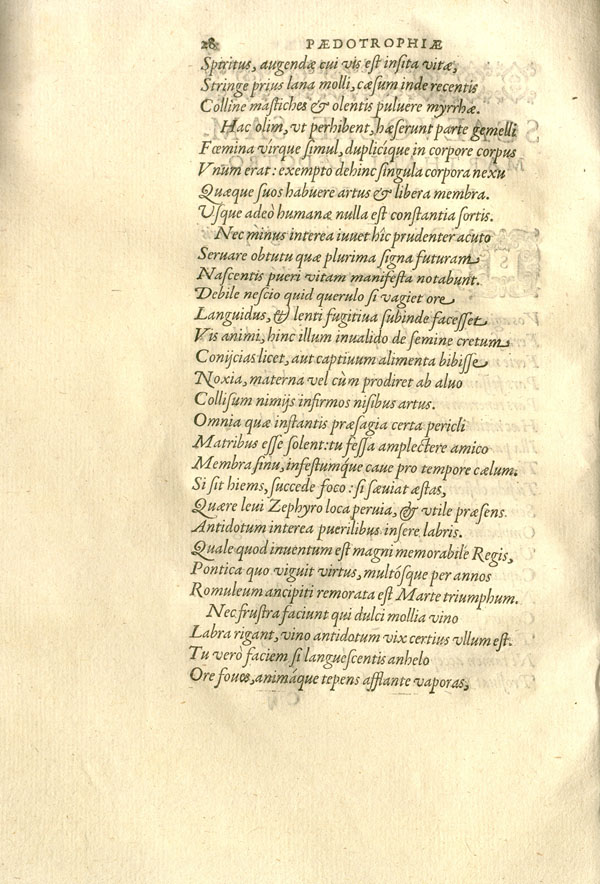 28 PÆDOTROPHIÆ
Spiritus, augendæ cui vis est insita vitæ,
Stringe prius lana molli, cæsum inde recentis
Colline mastiches & olentis puluere myrrhæ.
Hac olim, vt perhibent, hæserunt parte gemelli
Fœmina virque simul, duplicíque in corpore corpus
Vnum erat: exempto dehinc singula corpora nexu
Quæque suos habuere artus & libera membra.
Vsque adeò humanæ nulla est constantia sortis.
Nec minus interea iuuet hîc prudenter acuto
Seruare obtutu quæ plurima signa futuram
Nascentis pueri vitam manifesta notabunt.
Debile nescio quid querulo si vagiet ore
Languidus, & lenti fugitiua subinde facesset
Vis animi, hinc illum inualido de semine cretum
Conijcias licet, aut captiuum alimenta bibisse
Noxia, materna vel cùm prodiret ab aluo
Collisum nimijs infirmos nisibus artus.
Omnia quæ instantis præsagia certa pericli
Matribus esse solent: tu fessa amplectere amico
Membra sinu, infestumq́ue caue pro tempore cælum.
Si sit hiems, succede foco: si sæuiat æstas,
Quære leui Zephyro loca peruia, & vtile præsens
Antidotum interea puerilibus insere labris.
Quale quod inuentum est magni memorabile Regis,
Pontica quo viguit virtus, multósque per annos
Romuleum ancipiti remorata est Marte triumphum.
Nec frustra faciunt qui dulci mollia vino
Labra rigant, vino antidotum vix certius vllum est.
Tu verò faciem si languescentis anhelo
Ore foues, animáque tepens afflante vaporas,